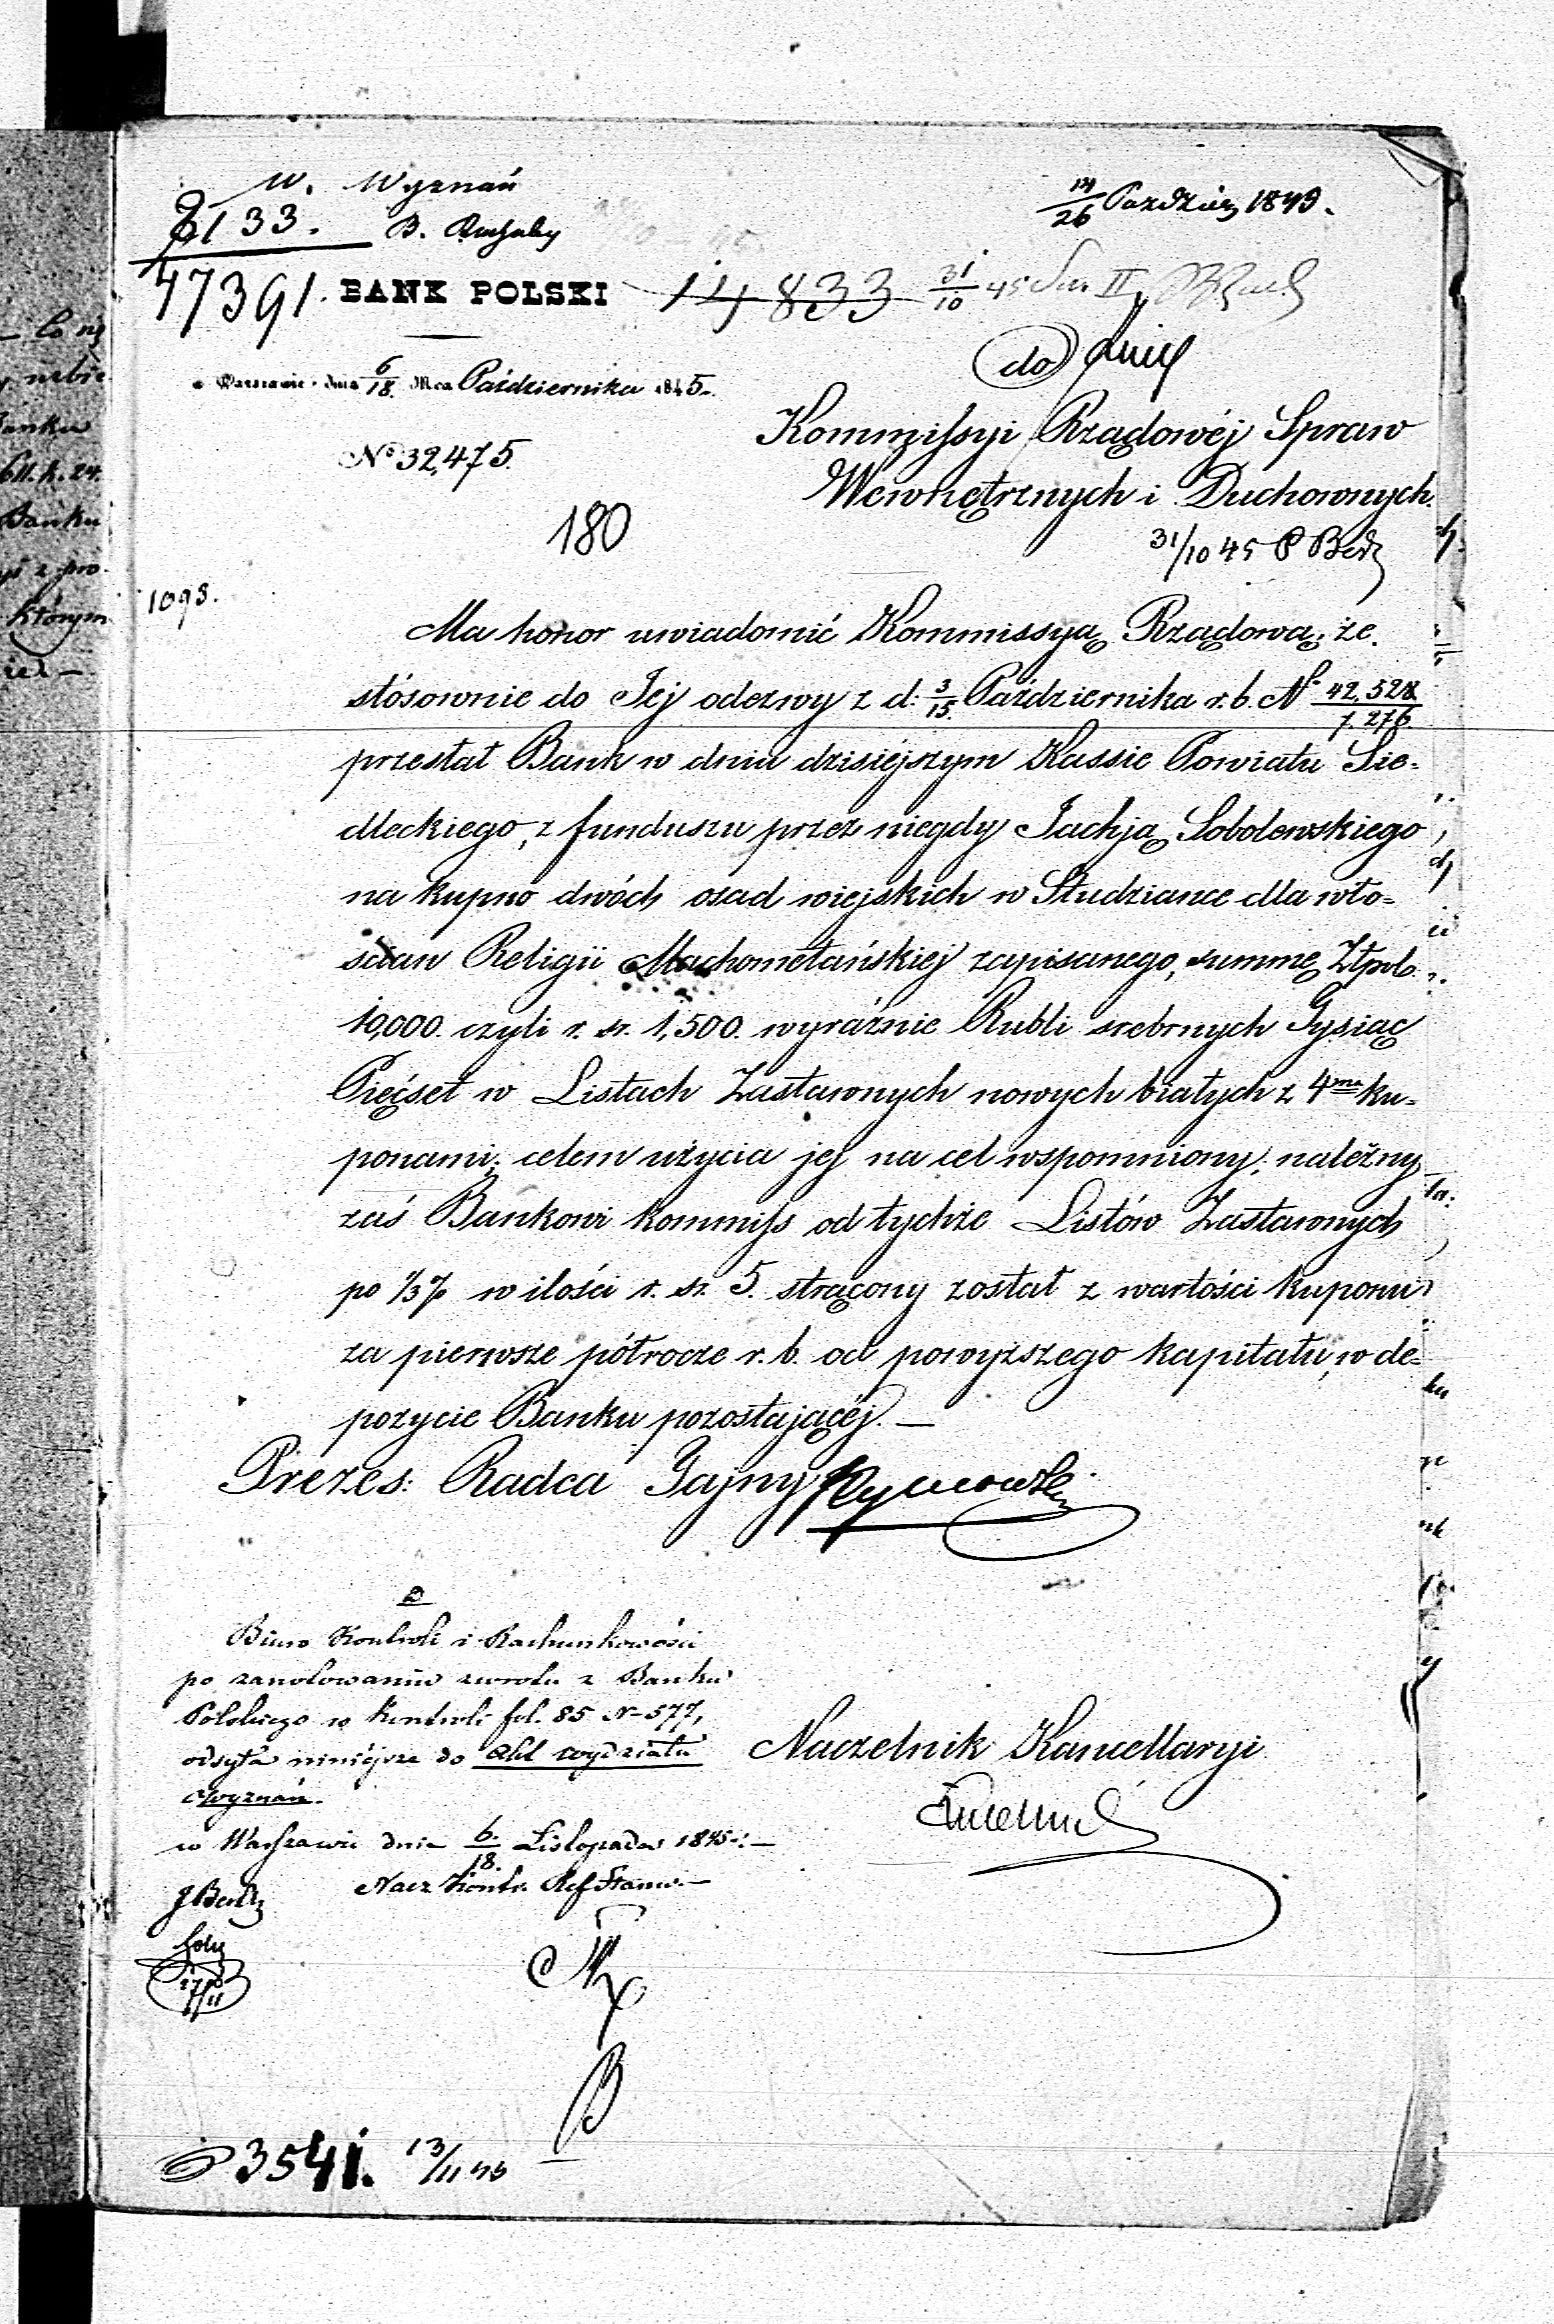 W. Wyznań
8133. B.
14/26 Paździer 1845.
47391. BANK POLSKI 14833 31/10 45
w Warszawie dnia 6/18. Mca Października 1845.
do
No 32,475.
Kommissyi Rządowéj Spraw
Wewnętrznych i Duchownych.
180
31/10 45
1093.
Ma honor uwiadomić Kommissyą Rządową, że
stósownie do Jej odezwy z d. 3/15. Października r. b. No 42,528/7.276
przesłał Bank w dniu dzisiéjszym Kassie Powiatu Sie=
dleckiego, z funduszu przez niegdy Jachją Sobolewskiego
na kupno dwóch osad wiejskich w Studziance dla wło=
ścian Religii Machometańskiej zapisanego, summę Złpol.
10,000. czyli r. sr. 1,500. wyraźnie Rubli srebrnych Tysiąc
Pięćset w Listach Zastawnych nowych białych z 4ma ku=
ponami, celem użycia jej na cel wspomniony, należny
zaś Bankowi kommiss od tychże Listów Zastawnych
po 1/3% w ilości r. sr. 5. strącony został z wartości kuponu
za pierwsze półrocze r. b. od powyższego kapitału, w de=
pozycie Banku pozostającéj. —
Prezes: Radca Tajny
Biuro Kontroli i Rachunkowości
po zanotowaniu zwrotu z Banku
Polskiego w Kontroli fol. 85 N 577,
odsyła niniéjsze do Akt wydziału
Wyznań.
Naczelnik Kancellaryi
w Warszawie dnia 6/18. Listopada 1845 —
Nacz Kontr.
3541. 13/11 45